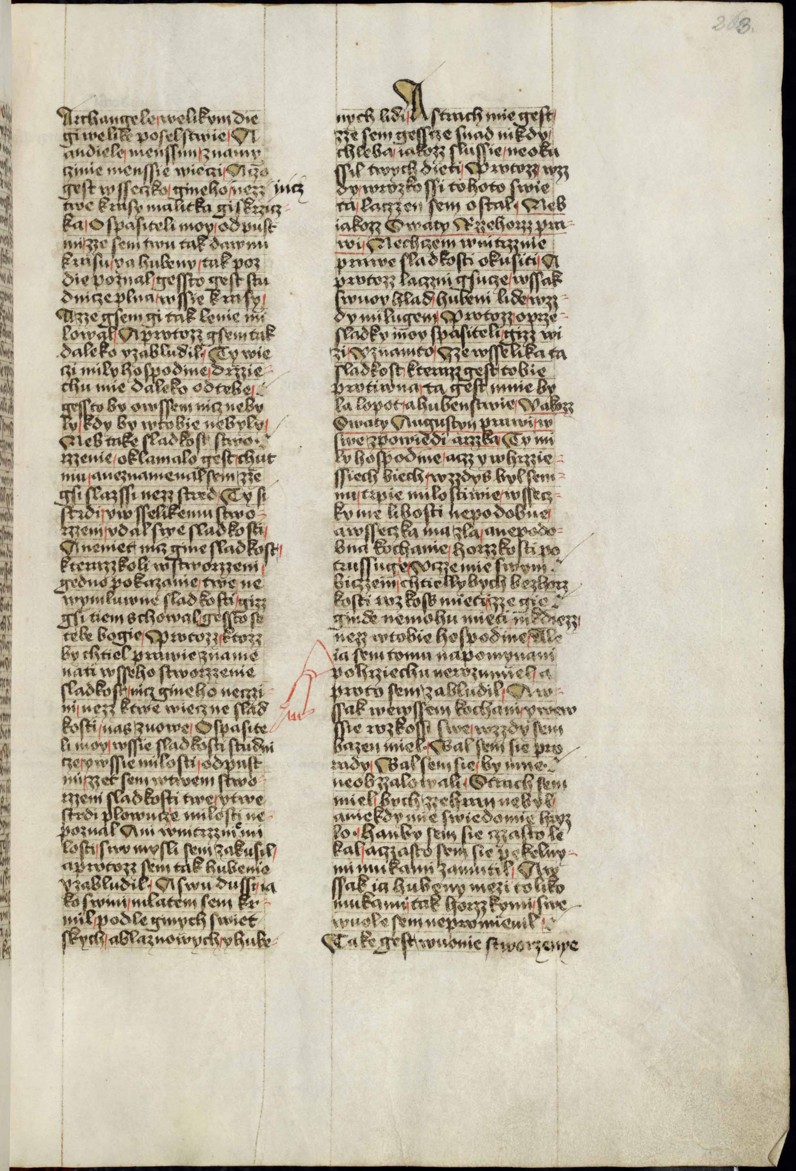 263.
Archangele welikym die
gi welike poselstwie A
andiele menssim znamy
czinie menssie wieczi A czo
gest wsseczko gineho nezz nicz
twe krasy malitka giskrzicz-
ka O spasiteli moy odpust
mi zze sem twu tak dawnu
krasu ya hubeny tak poz
die poznal gessto gest stu
dnicze plna wssie krasy
A zze gsem gi tak lenie mi
lowal A protozz gsem tak
daleko yzabludil Ty wie
czi mily hospodine drzzie-
chu mie daleko od tebe
gessto by owssem nicz neby
ly kdy by w tobie nebyly
Neb take sladkost stwo-
rzzenie oklamalo gest chut
mu a neznamenal sem zze
gsi slazssi nezz stred Ty si
stRdi y wsselikemu stwo-
rzzeni vdal swe sladkosti
A nemeti nicz gine sladkost
kteruzzkoli w stworzzeni
gedno pokazanie twe ne
wymluwne sladkosti gizz
gsi tiem schowal gessto se
tebe bogie Protozz ktozz
by chtiel prawie zname
nati wsseho stworzzenie
sladkost nicz gineho neczi-
ni nezz k twe wieczne slad
kosti nas zuowe O spasite
li moy wssie sladkosti studni
cze y wssie milosti odpust
mi zzet sem w twem stwo-
rzzeni sladkosti twe y twe
strdi plowucze milosti ne-
poznal Ani wnitrznim mi
losti swu mysli sem zakusil
a protozz sem tak hubenie
yzabludil A swu dussi ia
ko swini mlatem sem kr-
mil podle ginych swiet
skych ablaznowych y hube-
nych lidi A strach mie gest
zze sem gesscze snad nikdy
chleba iakozz slussie neoku
ssil twych dieti Protozz wzz
dy w rozkossi tohoto swie
ta laczen sem ostal Neb
iakozz Swaty Rzzehorzz pra-
wi Nechczem wnitrznie
prawe sladkosti okusiti A
protozz laczni gsucze wssak
swuoy hlad hubeni lide wzz-
dy milugem Protozz o prze-
sladky moy spasiteli gizz wi
zi y znamto zze wsselika ta
sladkost kteruzz gest tobie
protiwna ta gest mnie by
la lopot a hubenstwie Yakozz
Swaty Augustyn prawi w
swe zpowiedi arzka Ty mi
ly hospodine aczz y w hrzzie-
ssiech biech wzzdys byl sem-
nu trpie milostiwie wssecz-
ky me libosti nepodobne
a wsseczka ma zla anepodo-
bna kochanie horzzkosti po
trussuge Ucze mie swym
biczzem chtielby bych bezhorz
kosti rozkoss mieti zze gie
ginde nemohu mieti nikdiezz
nezz w tobie hospodine Ale
ia sem tomu napomynani
pohrziechu nerozumiel a
proto sem zabludil A w-
ssak we wssem kochani y wew
ssie rozkossi swe wzzdy sem
bazen miel Bal sem sie pro
rady Bal sem sie by mne
neobzzalowali Strach sem
miel bych zzehran nebyl
anekdy mie swiedomie hryz
lo Hanby sem sie czzasto le
kal aczzasto sem sie pekelny-
mi mukami zamutil A w
ssak ia hubeny mezi toliko
mukami tak horzzkymi swe
wuole sem nepromienil
Take gest wuonie stworzenye